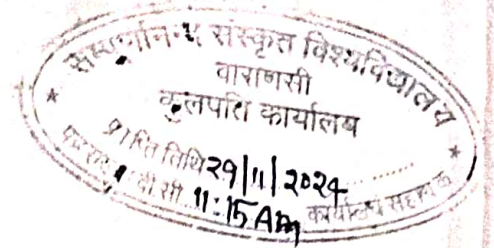 सम्पूर्णानन्द संस्कृत विश्वविद्यालय
वाराणसी
कुलपति कार्यालय
प्राप्ति तिथि 29/11/2024
वी सी 11:15 AM
कार्यालय सहायक